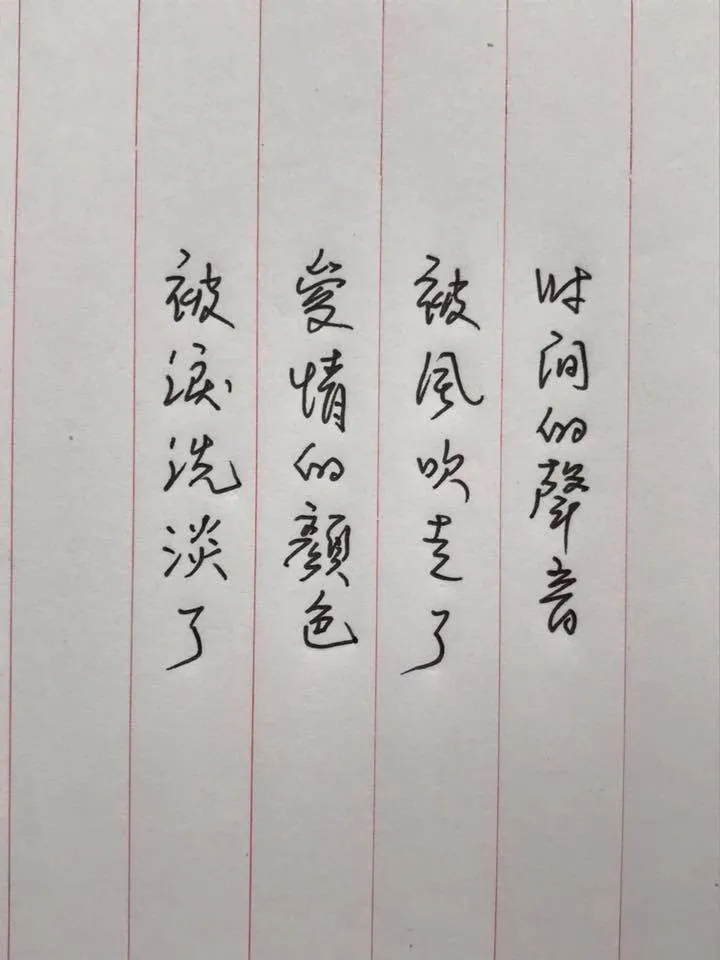 时间的聲音
被風吹走了
愛情的顏色
被淚洗淡了